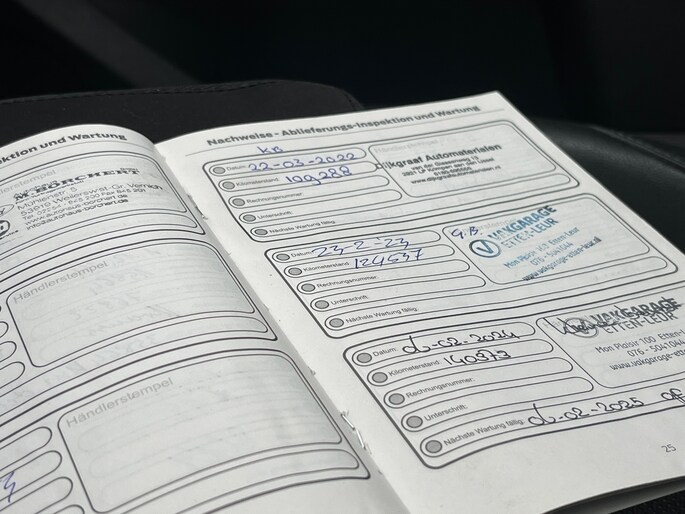 ktion und Wartung
dlerstempel
M. BORCHERT
Mühlenstr. 5
53919 Weilerswist-Gr. Vernich
Händlerstempel
Händlerstempel
Nachweise - Ablieferungs-Inspektion und Wartung
KB
Datum: 22-03-2022
Kilometerstand: 109288
Rechnungsnummer:
Unterschrift:
Nächste Wartung fällig:
Dijkgraaf Automaterialen
Datum: 23-2-23
Kilometerstand: 124637
Rechnungsnummer:
Unterschrift:
Nächste Wartung fällig:
G.B.
VAKGARAGE
ETTEN-LEUR
Mon Plaisir 100 Etten-Leur
076 - 5041044
www.vakgarage-etten-leur.nl
Datum: 06-02-2024
Kilometerstand: 140973
Rechnungsnummer:
Unterschrift:
Nächste Wartung fällig: 06-02-2025 of
VAKGARAGE
ETTEN-LEUR
Mon Plaisir 100 Etten-L
076 - 5041044
www.vakgarage-ette
25